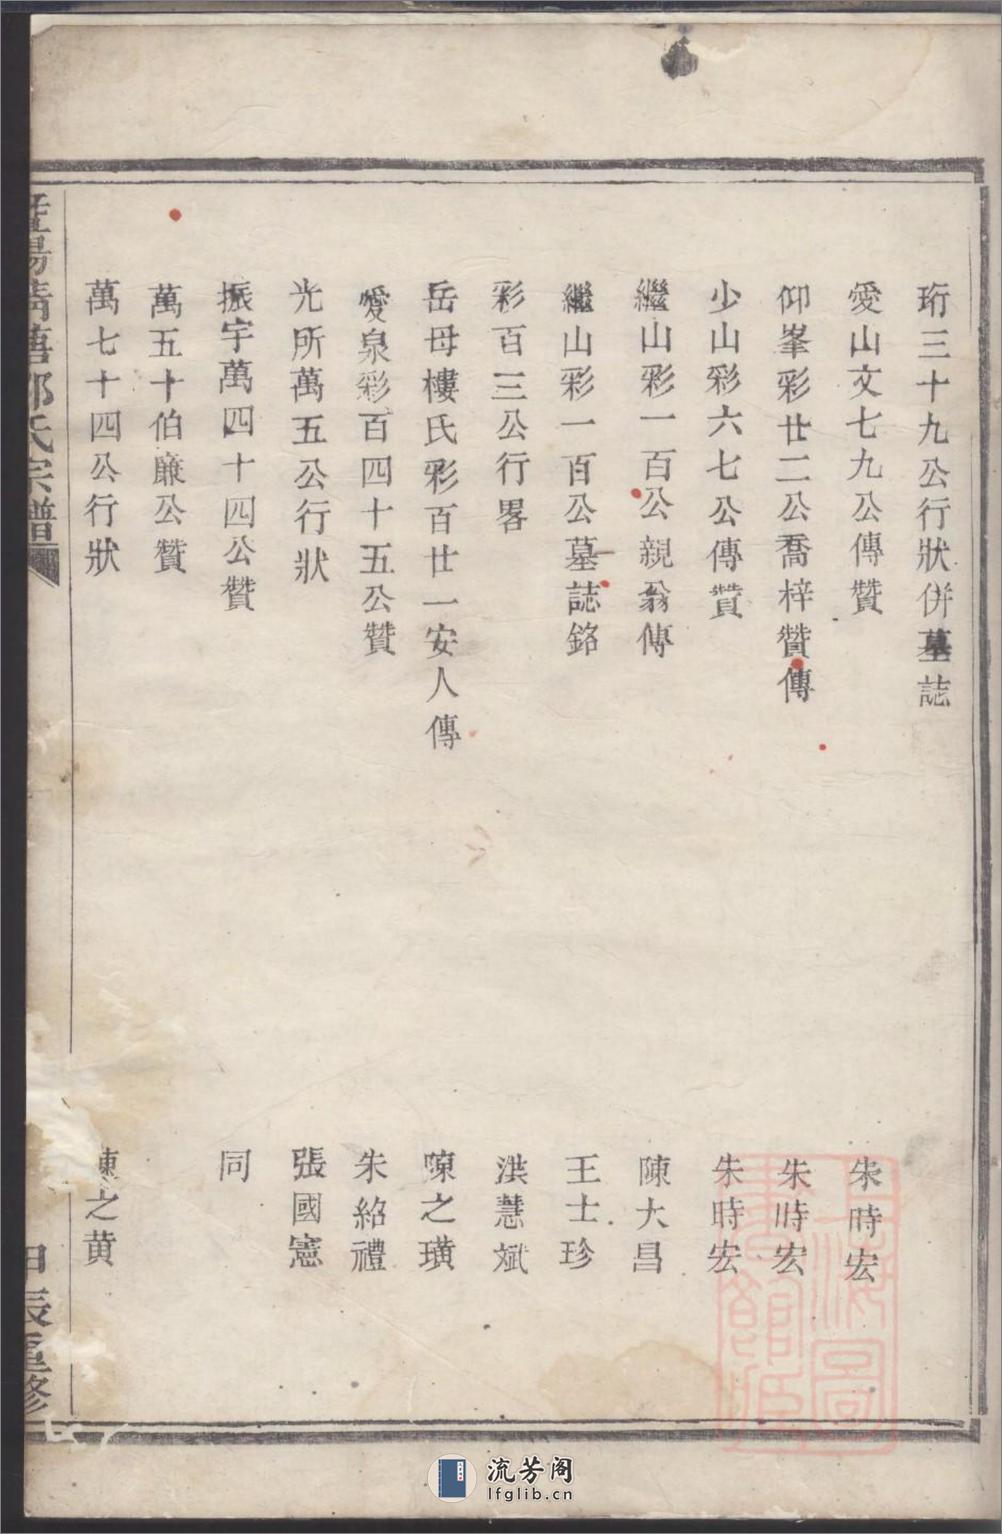 珩三十九公行狀併墓誌
愛山文七九公傳贊 朱時宏
仰峯彩廿二公喬梓贊傳 朱時宏
少山彩六七公傳贊 朱時宏
繼山彩一百公親翁傳 陳大昌
繼山彩一百公墓誌銘 王士珍
彩百三公行畧 洪慧斌
岳母樓氏彩百廿一安人傳 陳之璜
愛泉彩百四十五公贊 朱紹禮
光所萬五公行狀 張國憲
振宇萬四十四公贊 同
萬五十伯廉公贊
萬七十四公行狀 陳之黄
氏宗譜
辰重修
上海圖書館藏
流芳阁
lfglib.cn